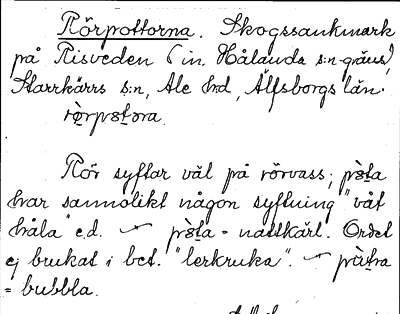 Rörpottorna. Skogssankmark
på Risveden (in. Hålanda s:n-gräns),
Starrkärrs s:n, Ale hd, Älfsborgs län.
rö̀rpɔta̠ra.
Rör syftar väl på rörvass; pɔ̀ta
har sannolikt någon syftning "våt
håla" e.d. — pɔ̀ta = nattkärl. Ordet
ej brukat i bet. "lerkruka". — pùtra
= bubbla.